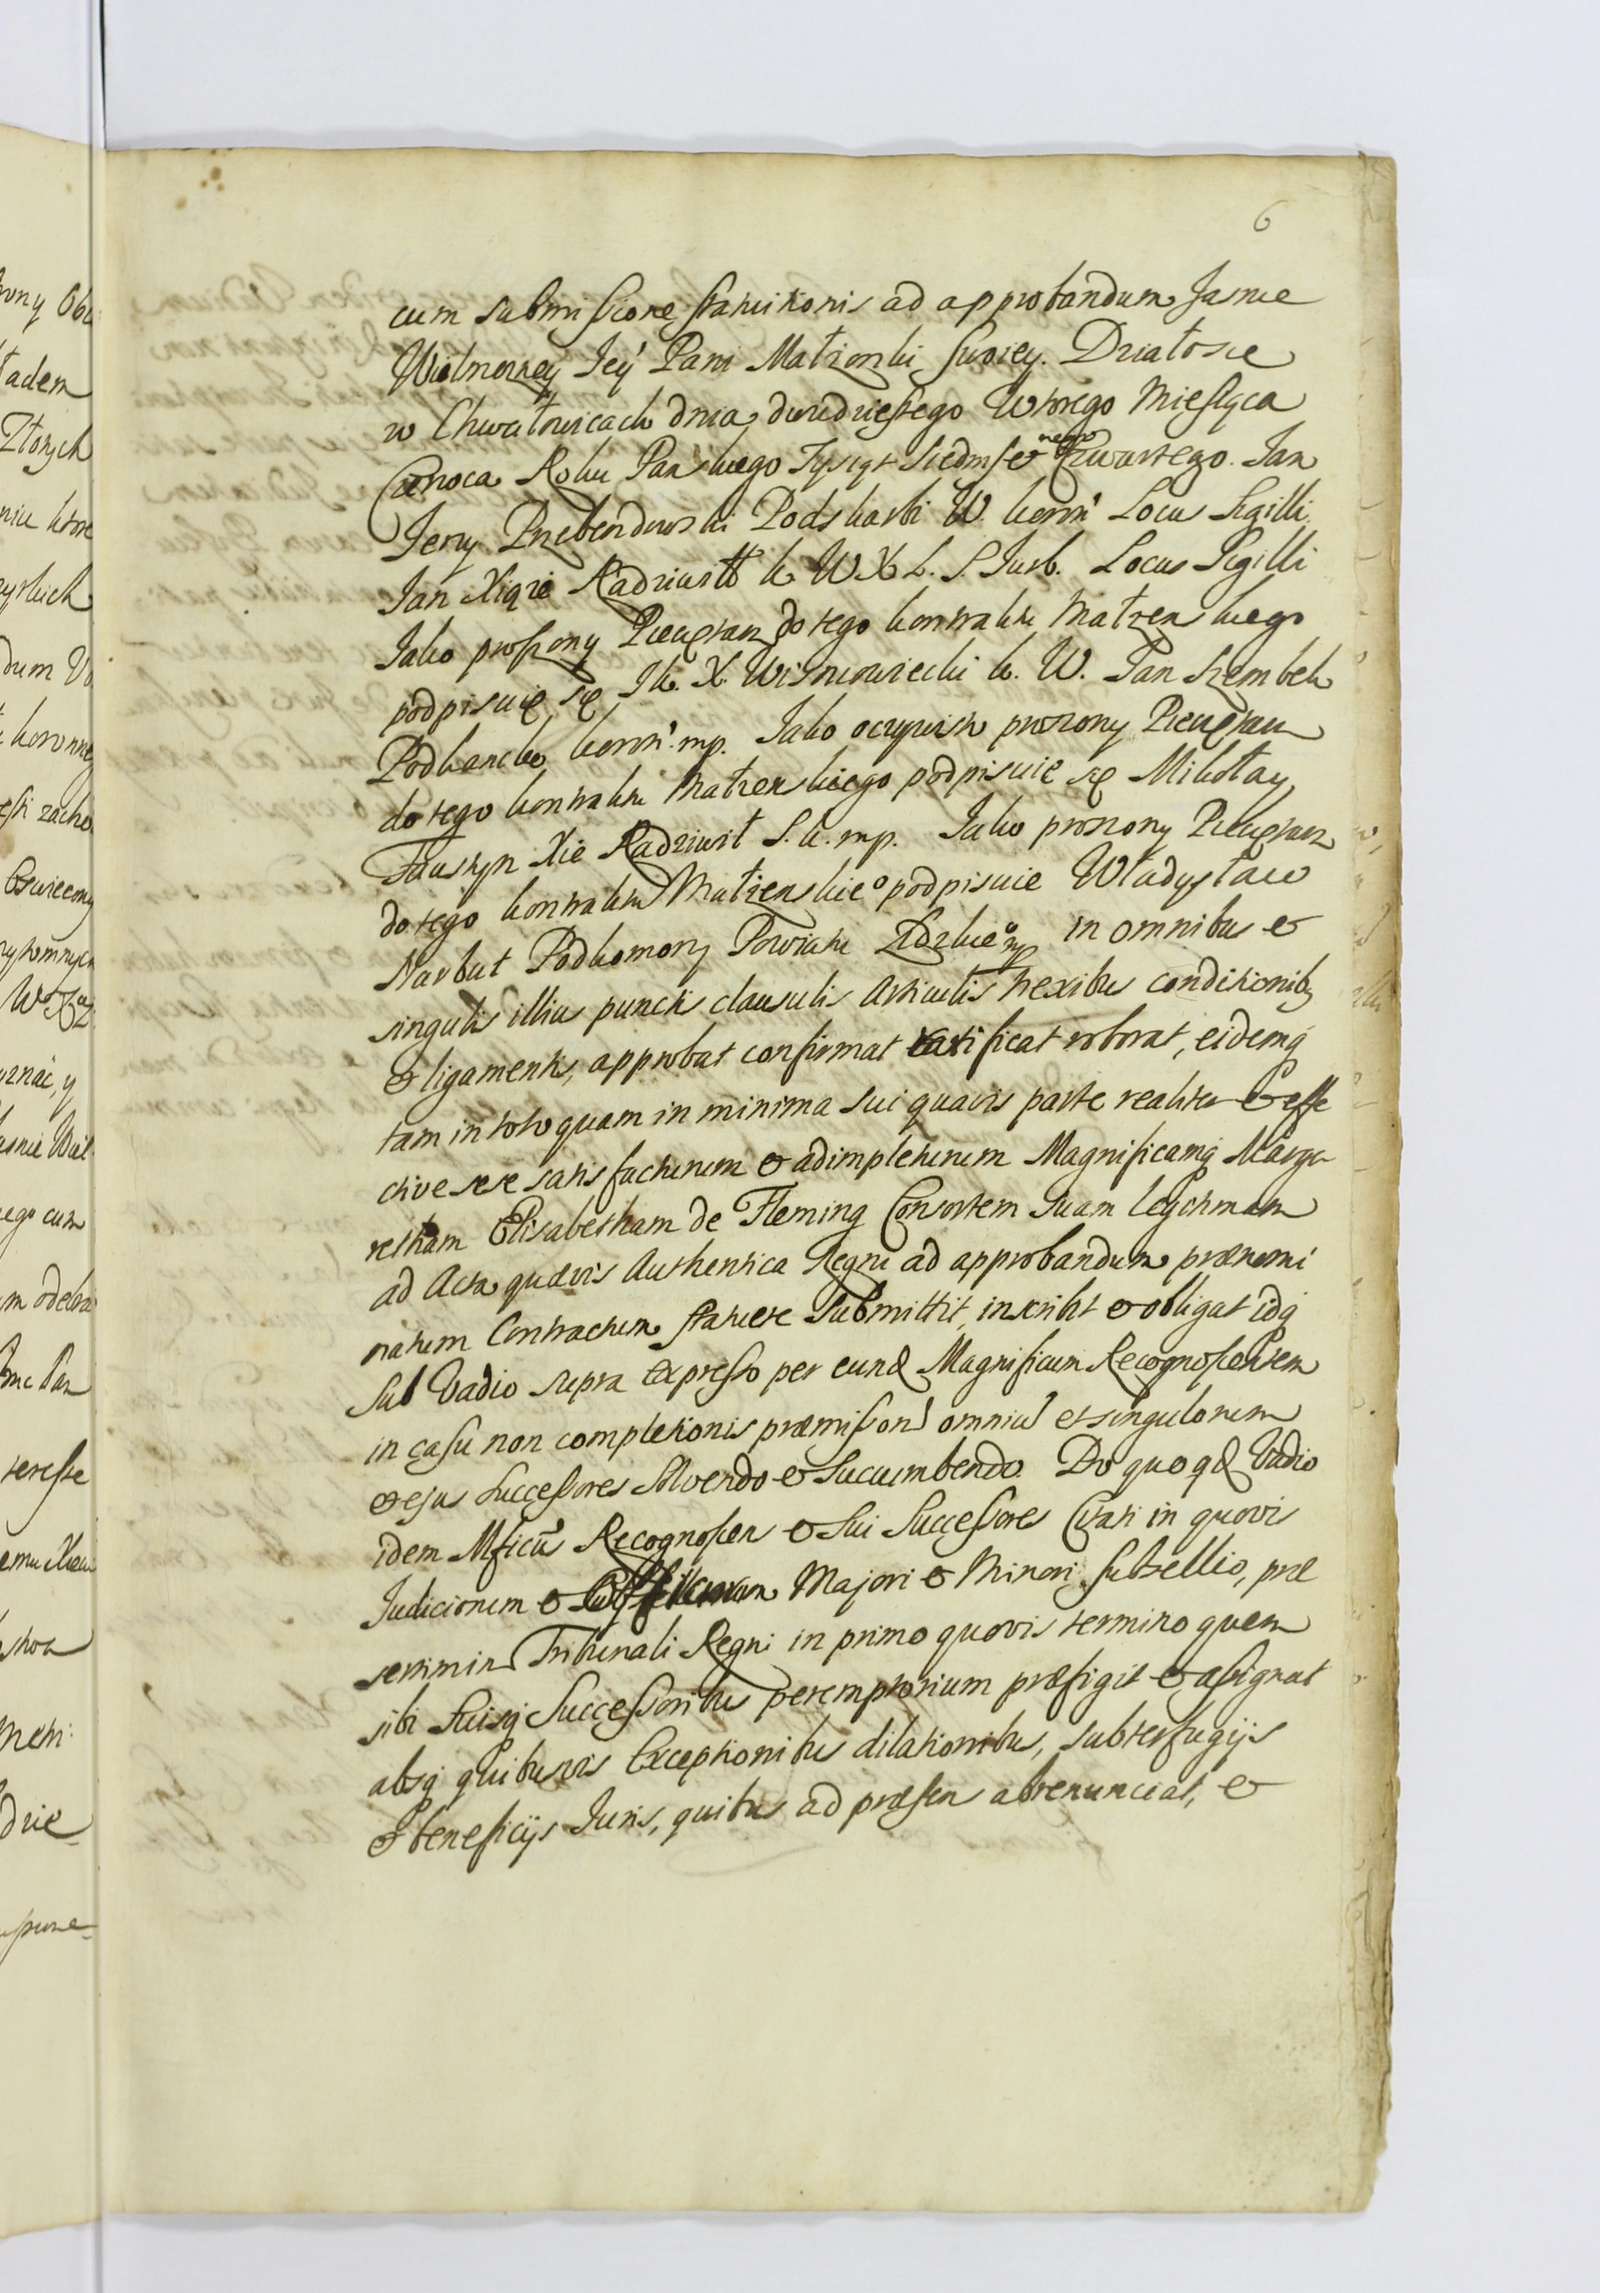 6
cum submissione statuitionis ad approbandum Jasnie
Wielmozney Jey Pani Małzonki Swoiey. Działosie
w Chwałowicach dnia dwudziestego Wtorego Miesyąca
Czerwca Roku Panskiego Tysiąc Siedmset Czwartego. Jan
Jerzy Przebendowski Podskarbi W. koron: Locus Sigilli.
Jan Xiąże Radziwiłł k W X L. S. Jurb. Locus Sigilli
Jako proszony Pieczętarz do tego kontraktu Małzenskiego
podpisuię się J k. X. Wisniowiecki k. W. Jan Szembek
Podkancl: koron: mp. Jako oczywisto proszony Pieczętarz
do tego kontraktu Małzenskiego podpisuie się Mikołay
Faustyn Xie Radziwił S. k. mp. Jako proszony Pieczętarz
do tego kontraktu Małzenskie° podpisuie Władysław
Narbut Podkomorzy Powiatu Lidzkie° mp in omnibus et
singulis illius punctis clausulis Articulis nexibus conditionibꝫ
et ligamentis, approbat confirmat ratificat roborat, eidemq
tam in toto quam in minima sui quavis parte realiter et effe
ctive sese satisfacturum et adimpleturum Magnificamq Marga
retham Elisabetham de Fleming Consortem Suam legitimam
ad Acta quævis Authentica Regni ad approbandum prænomi
natum Contractum statuere Submittit, inscribit et obligat idq
Sub Vadio supra expresso per eund Magnificum Recognoscentem
in casu non completionis præmissor omniu et singulorum
et ejus Successores Solvendo et Sucumbendo. Pro quo qd Vadio
idem Mficus Recognoscen et Sui Successores Citati in quovis
Judiciorum et Majori et Minori Subsellio, præ
sertim in Tribunali Regni in primo quovis termino quem
sibi Suisq Successoribus peremptorium præfigit et assignat
absq quibusvis Exceptionibus dilationibus, subterfugijs
et beneficijs Juris, quibus ad præsen abrenunciat, et